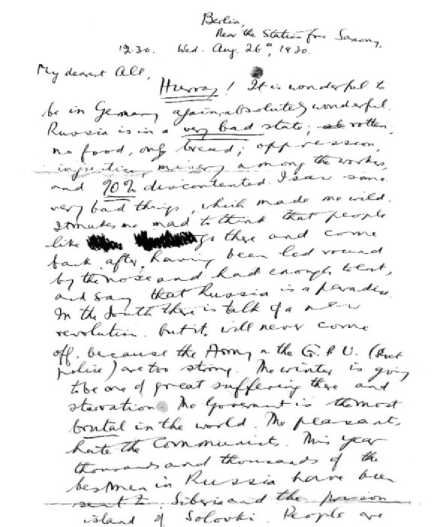 Berlin,
Near the Station for Saxony,
12.30. Wed. Aug. 26th, 1930.
My dearest All,
Hurray! It is wonderful to
be in Germany again, absolutely wonderful.
Russia is in a very bad state; rotten,
no food, only bread; oppression,
injustice, misery among the workers
and 90% discontented. I saw some
very bad things, which made me wild.
It makes me mad to think that people
like go there and come
back, after having been led round
by the nose and had enough to eat,
and say that Russia is a paradise.
In the South there is talk of a new
revolution, but it will never come
off, because the Army & the G.P.U. (Secret
police) are too strong. The winter is going
to be one of great suffering there and
starvation. The Government is the most
brutal in the world. The peasants
hate the Communists. This year
thousands and thousands of the
best men in Russia have been
sent to Siberia and the prison
island of Solovki. People are